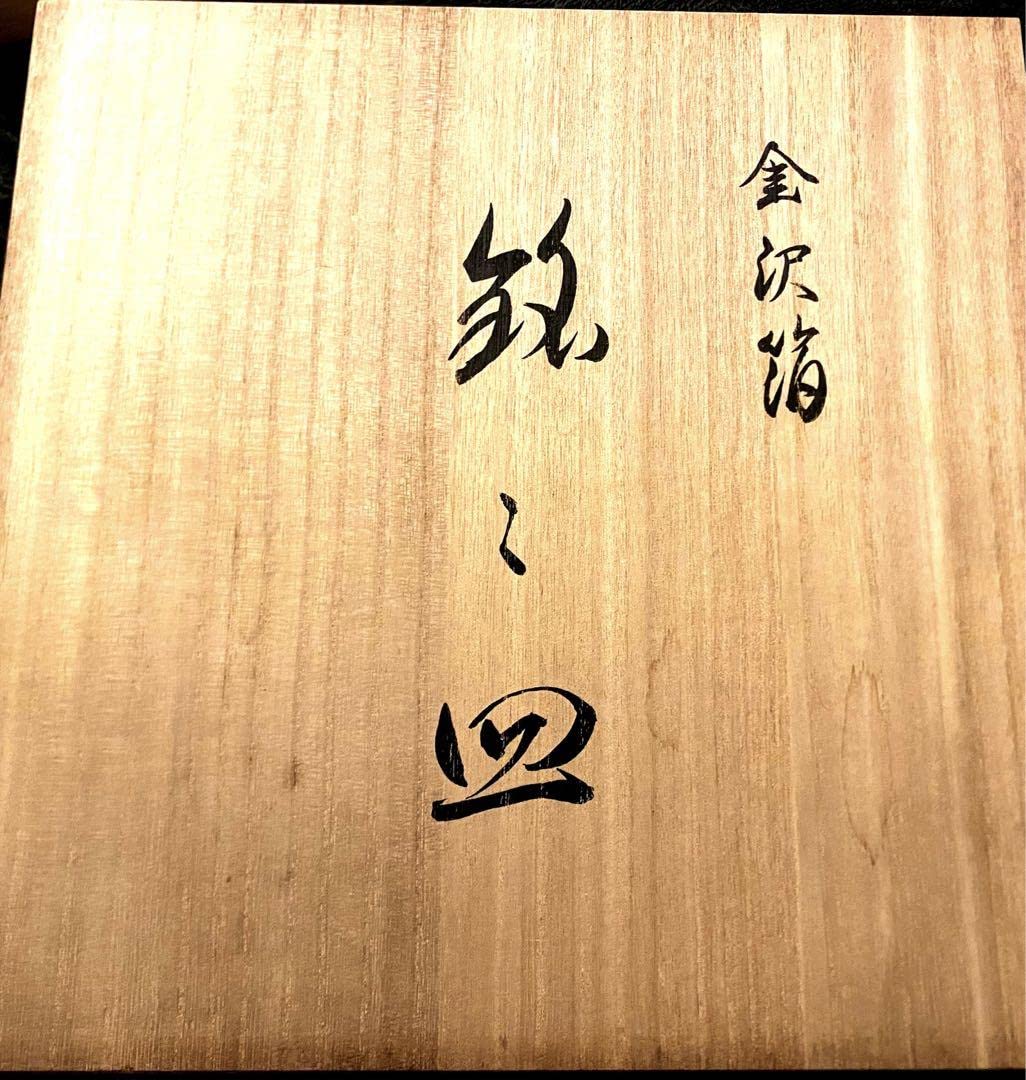 金沢箔
銘々皿